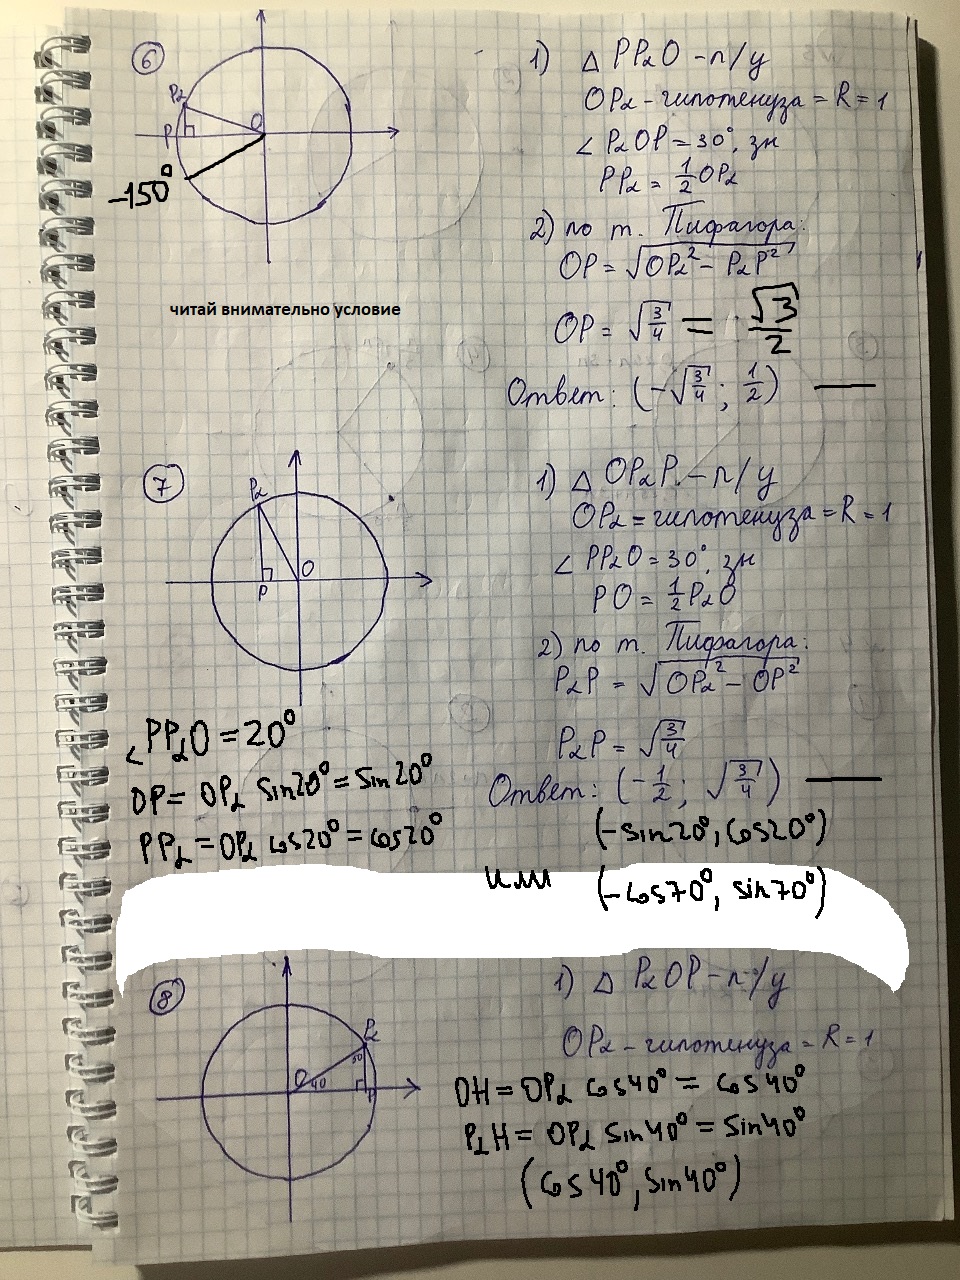 6
1) △ PP₂O - п/у
OP₂ - гипотенуза = R = 1
∠ P₂OP = 30°, зн
PP₂ = 1/2 OP₂
2) по т. Пифагора:
OP = √(OP₂² - P₂P²)
OP = √(3/4) = √3/2
Ответ: (-√(3/4); 1/2) —
P₂
P
O
-150°
читай внимательно условие
7
1) △ OP₂P - п/у
OP₂ = гипотенуза = R = 1
∠ PP₂O = 30°, зн
PO = 1/2 P₂O
2) по т. Пифагора:
P₂P = √(OP₂² - OP²)
P₂P = √(3/4)
Ответ: (-1/2; √(3/4)) —
P₂
O
P
∠PP₂O = 20°
OP = OP₂ sin20° = sin20°
PP₂ = OP₂ cos20° = cos20°
(-sin20°, cos20°)
или (-cos70°, sin70°)
8
1) △ P₂OP - п/у
OP₂ - гипотенуза = R = 1
P₂
50
O
40
OH = OP₂ cos40° = cos40°
P₂H = OP₂ sin40° = sin40°
(cos40°, sin40°)